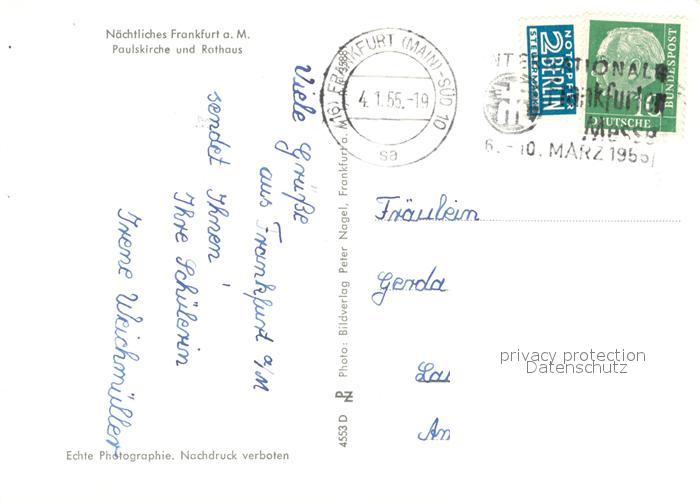 Nächtliches Frankfurt a. M.
Paulskirche und Rathaus
Viele Grüße
aus Frankfurt a/M
sendet Ihnen
Ihre Schülerin
Irene Weichmüller
Echte Photographie. Nachdruck verboten
4553 D
Photo: Bildverlag Peter Nagel, Frankfurt a. M.
(16) FRANKFURT (MAIN)-SÜD 10
4.1.55.-19
sa
NOTOPFER
2 BERLIN
STEUERMARKE
DEUTSCHE
BUNDESPOST
10
INTERNATIONALE
Frankfurter
Messe
6.-10. MÄRZ 1955
Fräulein
Gerda
privacy protection
Datenschutz